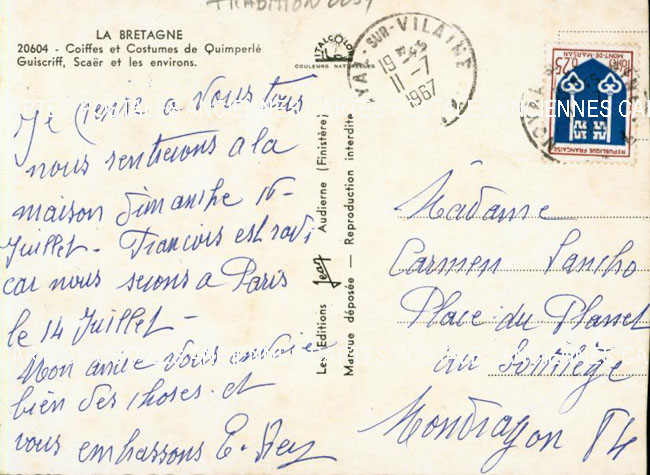 TRADITION
LA BRETAGNE
20604 - Coiffes et Costumes de Quimperlé
Guiscriff, Scaër et les environs.
ITALCOLOR
COULEURS NATURELLES
-SUR-VILAINE
19
11-7
1967
0,25
MONT-DE-MARSAN
REPUBLIQUE FRANÇAISE
Je pense a vous tous
nous rentrerons a la
maison dimanche 16-
Juillet - Francois est ravi
car nous serons a Paris
le 14 Juillet -
Mon amie vous envoie
bien des choses et
vous embrassons E. Rey
Les Editions Jean Audierne (Finistère)
Marque déposée — Reproduction interdite
Madame
Carmen Sancho
Place du Planet
au
Mondragon 84